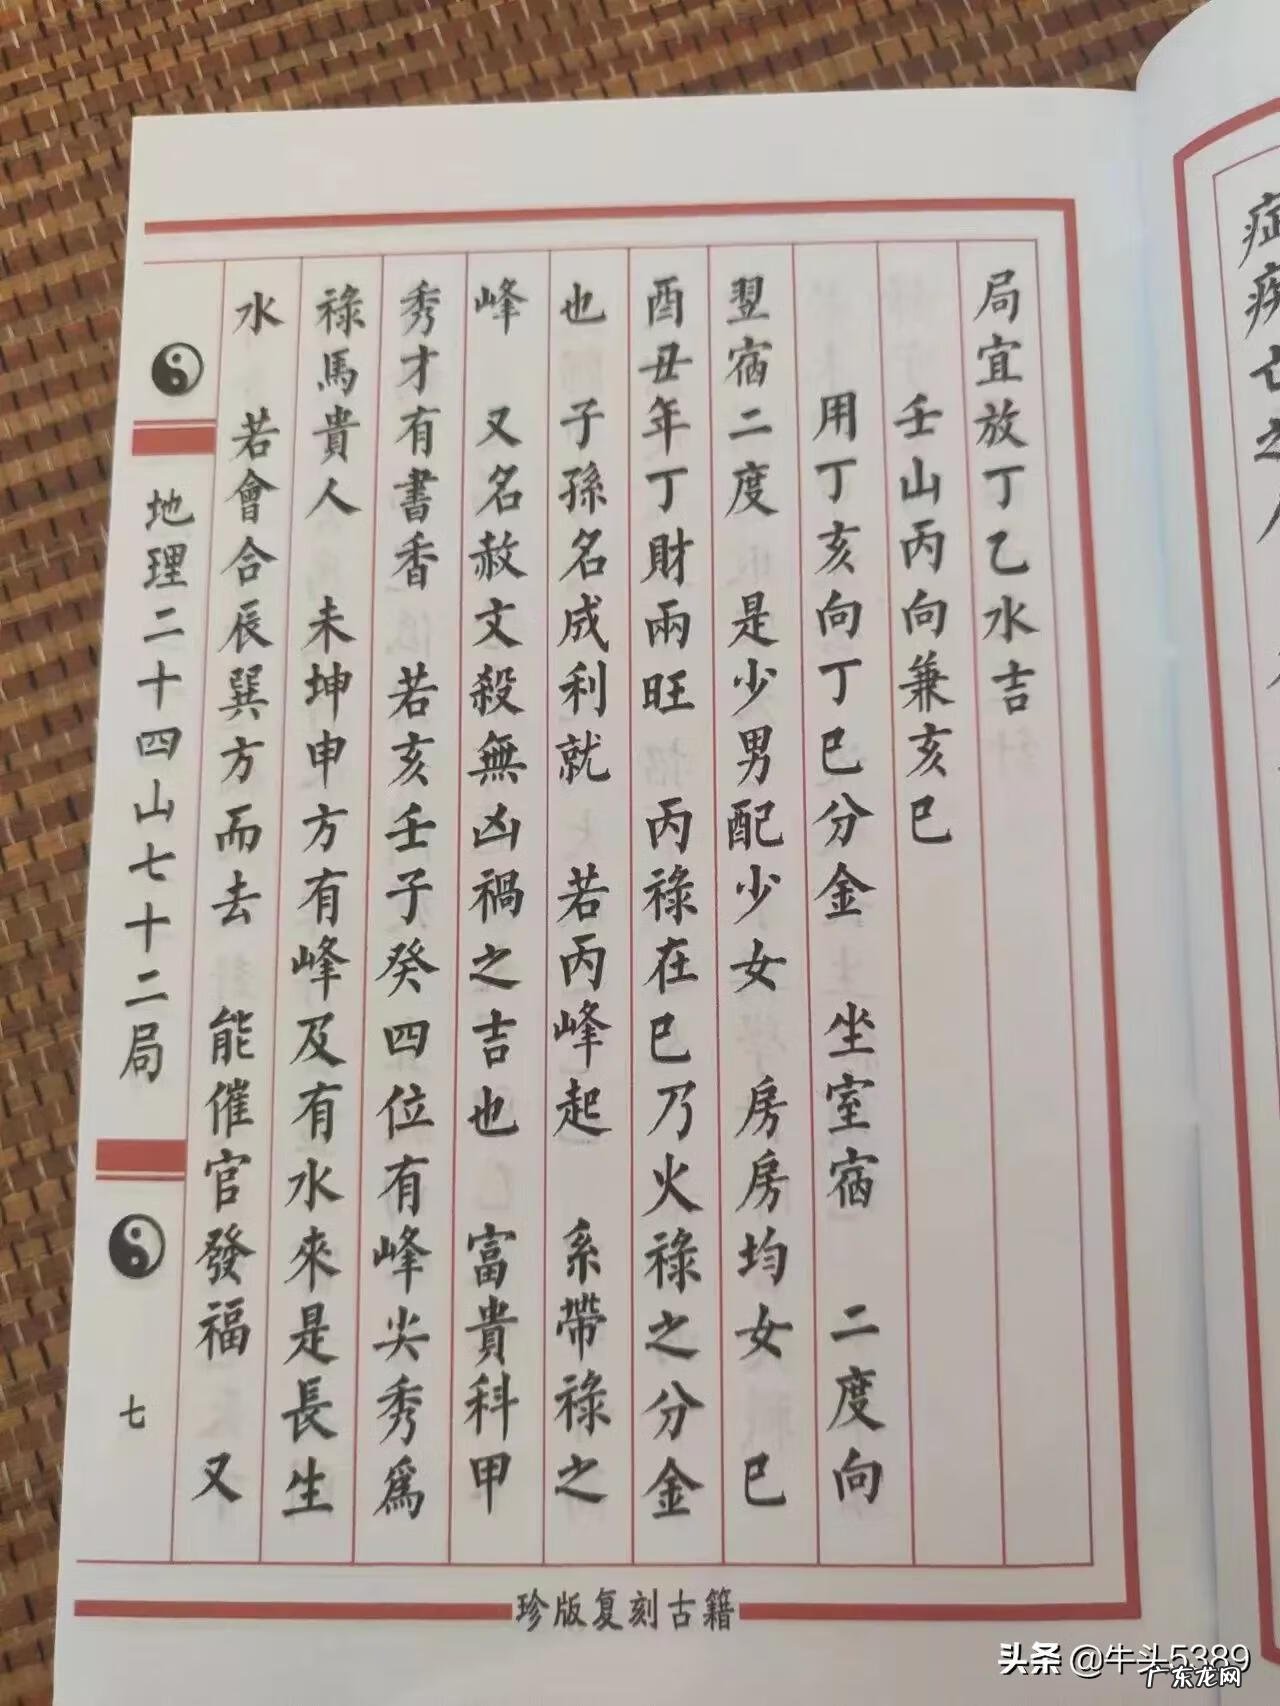 局宜放丁乙水吉
壬山丙向兼亥巳
用丁亥向丁巳分金　坐室宿　二度向
翌宿二度　是少男配少女　房房均女　巳
酉丑年丁財兩旺　丙祿在巳乃火祿之分金
也　子孫名成利就　若丙峰起　系帶祿之
峰　又名赦文殺無凶禍之吉也　富貴科甲
秀才有書香　若亥壬子癸四位有峰尖秀爲
祿馬貴人　未坤申方有峰及有水來是長生
水　若會合辰巽方而去　能催官發福　又
地理二十四山七十二局
七
珍版复刻古籍
症疾亡之人
头条 @牛头5389
广东龙网